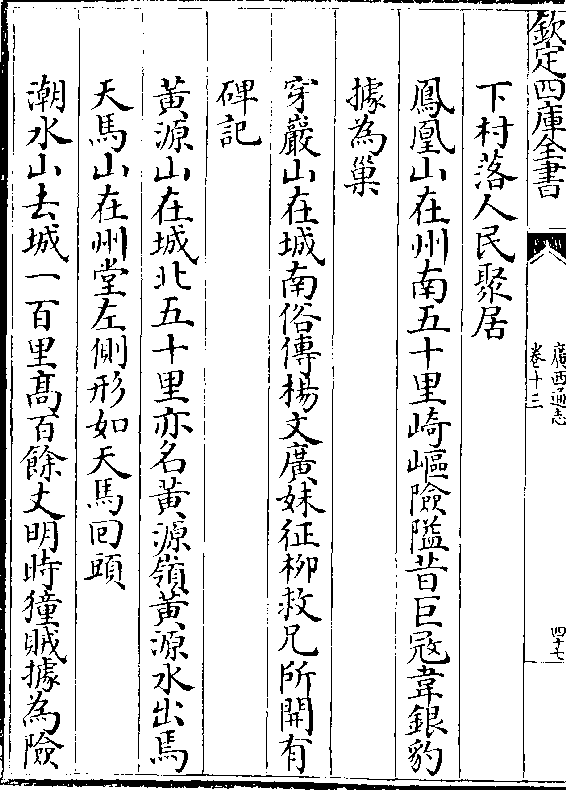 欽定四庫全書
廣西通志
卷十三
四十七
下村落人民聚居
鳳凰山在州南五十里崎嶇險隘昔巨冦韋銀豹
據為巢
穿巖山在城南俗傳楊文廣妹征柳救兄所開有
碑記
黃源山在城北五十里亦名黃源嶺黃源水出馬
天馬山在州堂左側形如天馬回頭
潮水山去城一百里髙百餘丈明時獞賊據為險